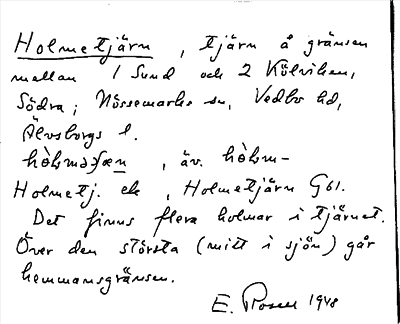 Holmetjärn, tjärn å gränsen
mellan 1 Sund och 2 Kölviken,
Södra; Nössemarks sn, Vedbo hd,
Älvsborgs l.
, äv. hòlm-
Holmetj. ek, Holmetjärn G61.
Det finns flera holmar i tjärnet.
Över den största (mitt i sjön) går
hemmansgränsen.
E. Rosell 1948